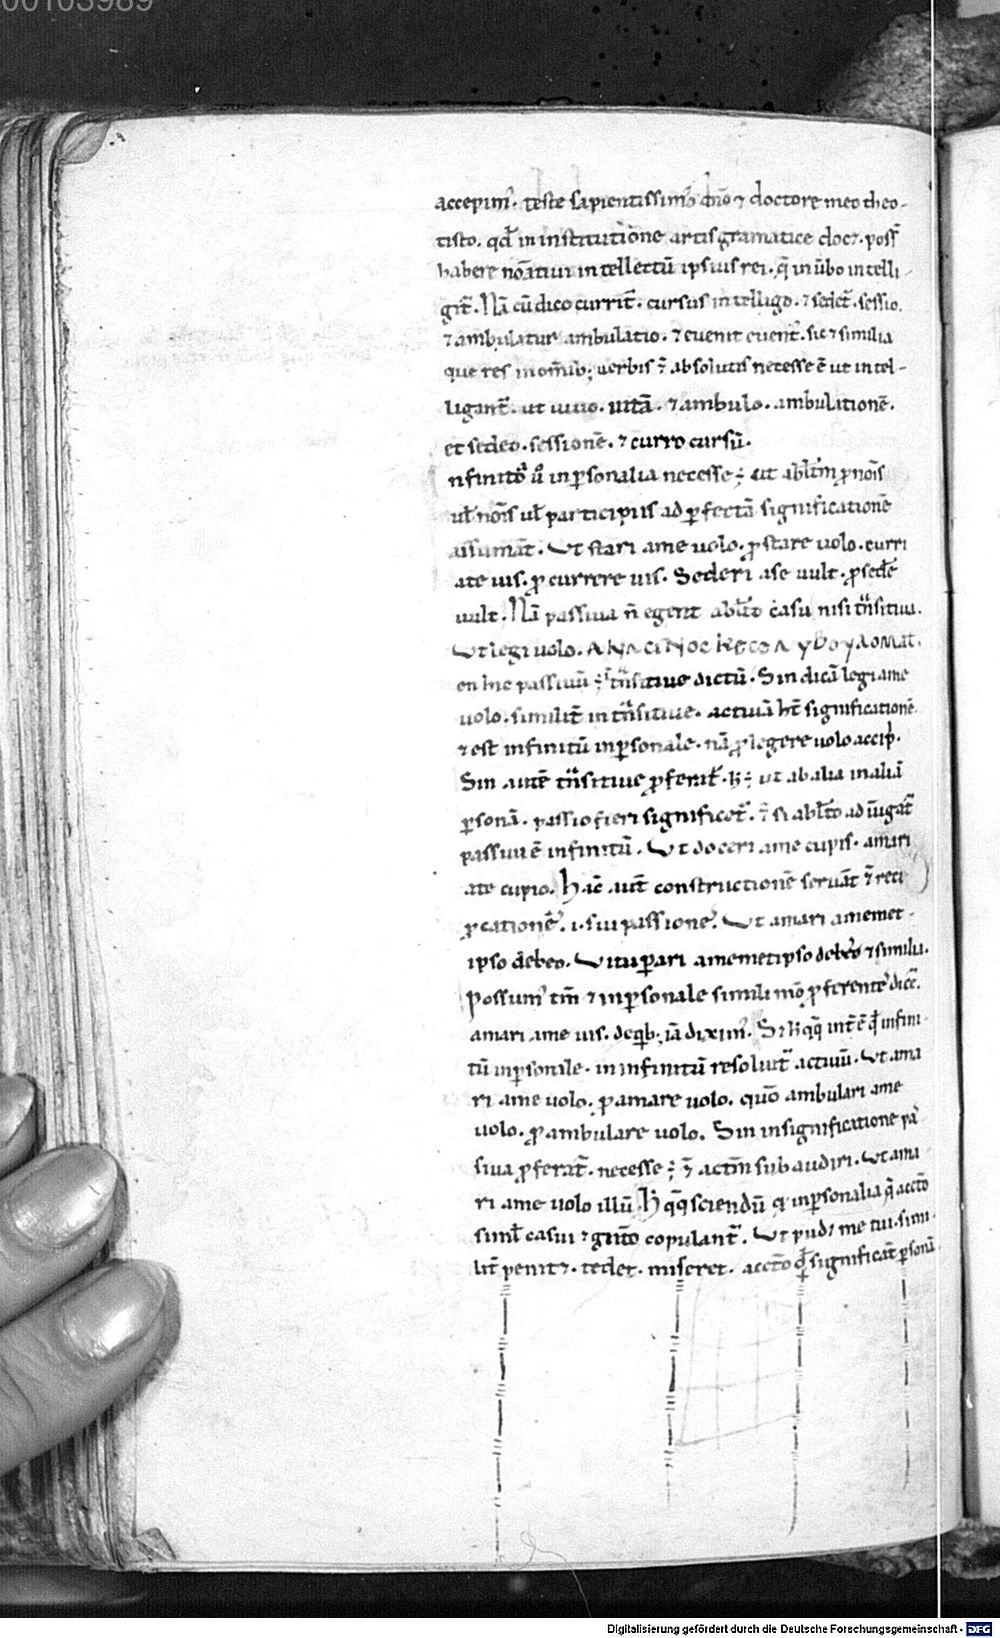 00103989
accepim᷒. teste sapientissimo dn̄o ⁊ doctore meo theo-
tisto. qd̄ in institutione artis gramatice docꝫ. poss̄
habere nōatiuū intellectū ipsius rei. q̄ in ūbo intelli-
git᷑. Nā cū dico currit᷑. cursus intelligo. ⁊ sedet᷑. sessio.
⁊ ambulatur ambulatio. ⁊ euenit euent᷒. sic ⁊ similia
que res in om̄ib; uerbis ⁊ absolutis necesse ē ut intel-
ligant᷑. ut uiuo. uitā. ⁊ ambulo. ambulationē.
et sedeo. sessionē. ⁊ curro cursū.
nfinita u̅ inꝑsonalia necesse ÷ ut abl̄tm̄ ꝓnōis
ul̄ nōis ul̄ participiis ad ꝑfectā significationē
assumāt. Vt stari a me uolo. ꝓ stare uolo. curri
a te uis. ꝓ currere uis. Sederi a se uult. ꝓ sedē
uult. Nā passiua n̄ egent abl̄to casu nisi tn̄sitiua.
Vt legi uolo. ΑΝΑΓΙΝΟCΚΕCΘΑΙ ΒΟΥΛΟΜΑΙ.
en hic passiuū ÷ ītn̄sitiue dictū. Sin dicā legi a me
uolo. similit᷑ intn̄sitiue. actiuā ht̄ significationē
⁊ est infinitū inꝑsonale. nā ꝓ legere uolo accip̄.
Sin autē tn̄sitiue ꝓferat᷑. h̄ ÷ ut ab alia in aliā
ꝑsonā. passio fieri significet᷑. ⁊ si abl̄to adiūgat᷑
passiuū ē infinitū. Vt doceri a me cupis. amari
a te cupio. hāc aut̄ constructionē seruāt ⁊ reci
ꝓcationē. i. sui passionē. Vt amari a memet-
ipso debeo. Vituꝑari a memetipso debeo ⁊ similia.
Possum᷒ tm̄ ⁊ inꝑsonale simili mō ꝓferentē dicē.
amari a me uis. de qb; iā dixim᷒. S; h̄ q̄q̄ int̄ē qd̄ infini-
tū inꝑsonale. in infinitū resoluit᷑ actiuū. Vt ama
ri a me uolo. ꝓ amare uolo. quō ambulari a me
uolo. ꝓ ambulare uolo. Sin in significatione pas
siua ꝓferat᷑. necesse ÷ ⁊ actm̄ subaudiri. Vt ama
ri a me uolo illū. h̄ q̄q̄ sciendū qd̄ inꝑsonalia q̄ accto
simul casui ⁊ gnt̄o copulant᷑. Vt pudꝫ me tui. simi-
lit᷑ penitꝫ. tedet. miseret. accto qd̄ significat ꝑsonā
Digitalisierung gefördert durch die Deutsche Forschungsgemeinschaft - DFG